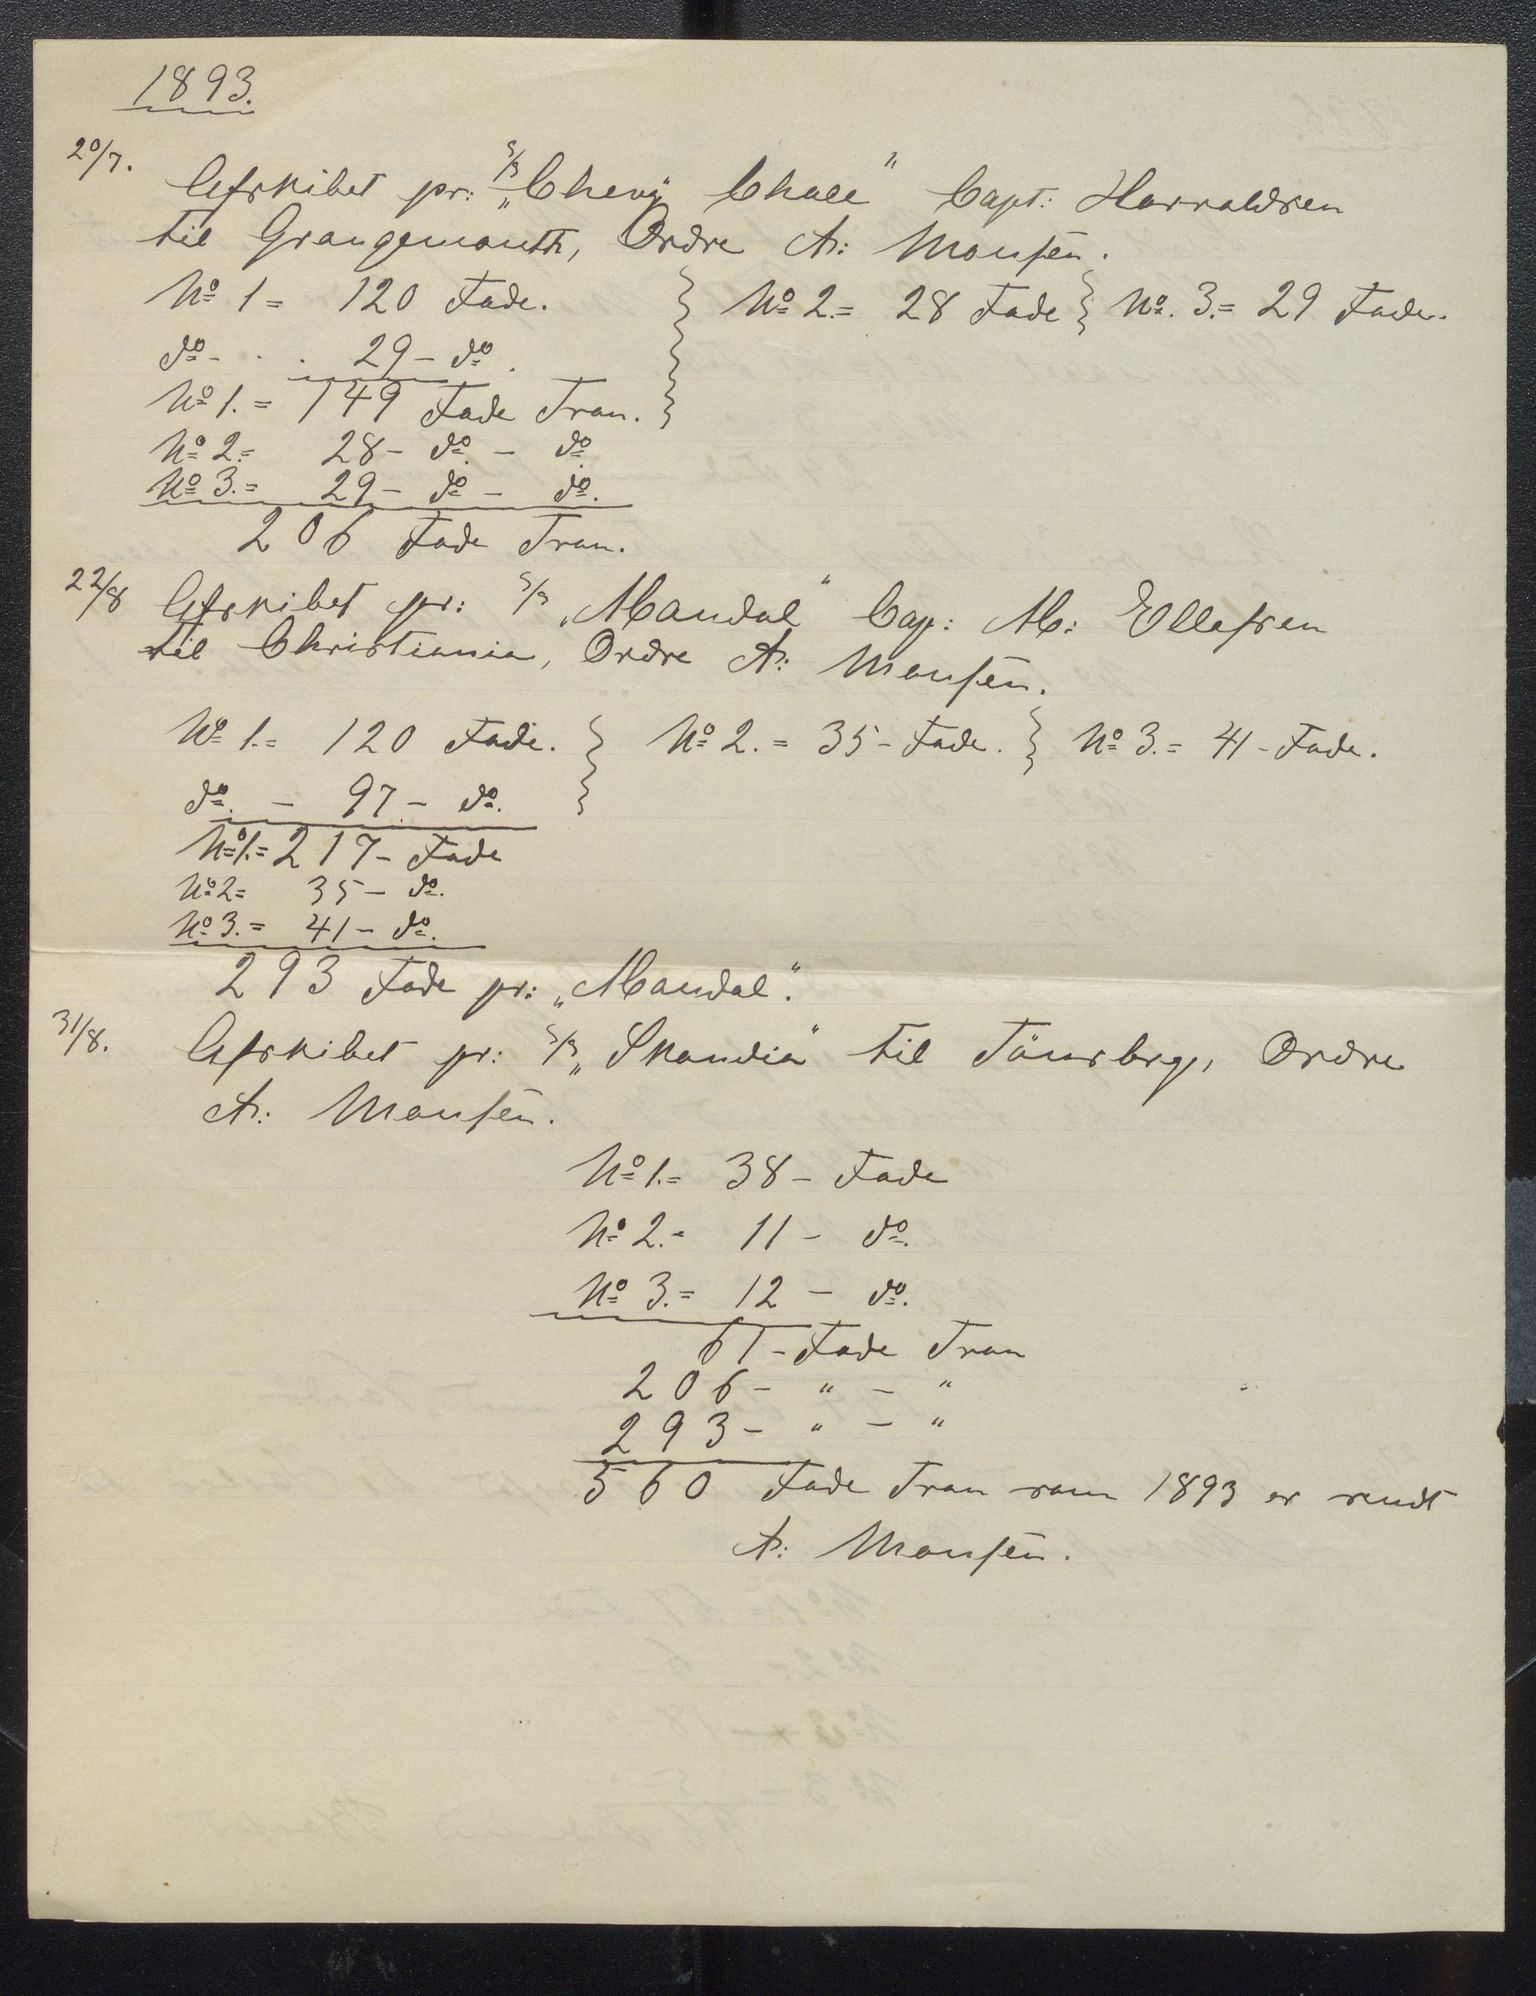 1893.
20/7. Afskibet pr: S/S „Chevy Chace" Capt: Harraldsen
til Grangemouth, Ordre A: Monsen.
No 1 = 120 Fade. } No 2. = 28 Fade } No. 3. = 29 Fade.
do - . . 29 - do.
No 1. = 149 Fade Tran.
No 2. = 28 - do. - do.
No 3. = 29 - do - do.
206 Fade Tran.
22/8 Afskibet pr: S/S „Mandal" Cap: M: Ellefsen
til Christiania, Ordre A: Monsen.
No 1. = 120 Fade. } No 2. = 35 - Fade. } No 3. = 41 - Fade.
do. - 97 - do.
No 1. = 217 - Fade
No 2 = 35 - do.
No 3. = 41 - do.
293 Fade pr: „Mandal".
31/8. Afskibet pr: S/S „Skandia" til Tönsberg, Ordre
A: Monsen.
No 1. = 38 - Fade
No 2. - 11 - do.
No 3. = 12 - do.
61 - Fade Tran
206 - " - "
293 - " - "
560 Fade Tran som 1893 er sendt
A: Monsen.